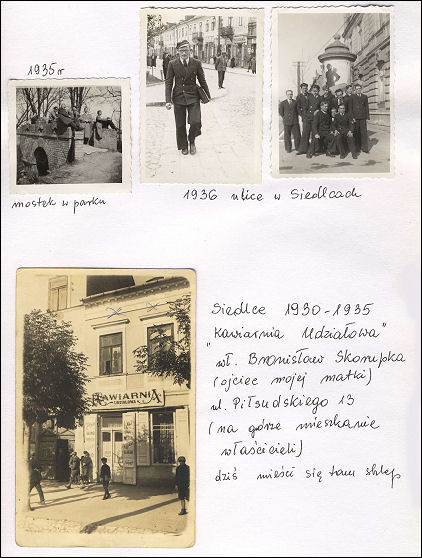 1935 r
mostek w parku
1936 ulice w Siedlcach
KAWIARNIA
UDZIAŁOWA
Siedlce 1930-1935
"Kawiarnia Udziałowa"
wł. Bronisław Skorupka
(ojciec mojej matki)
ul. Piłsudskiego 13
(na górze mieszkanie
właścicieli)
dziś mieści się tam sklep